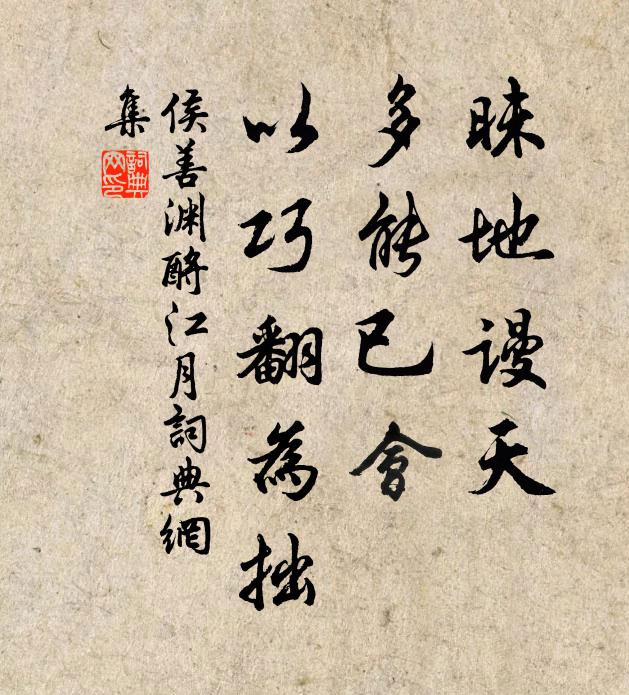 昧地谩天
多能已會
以巧翻為拙
侯善渊酹江月詞典網
集
詞典
网印